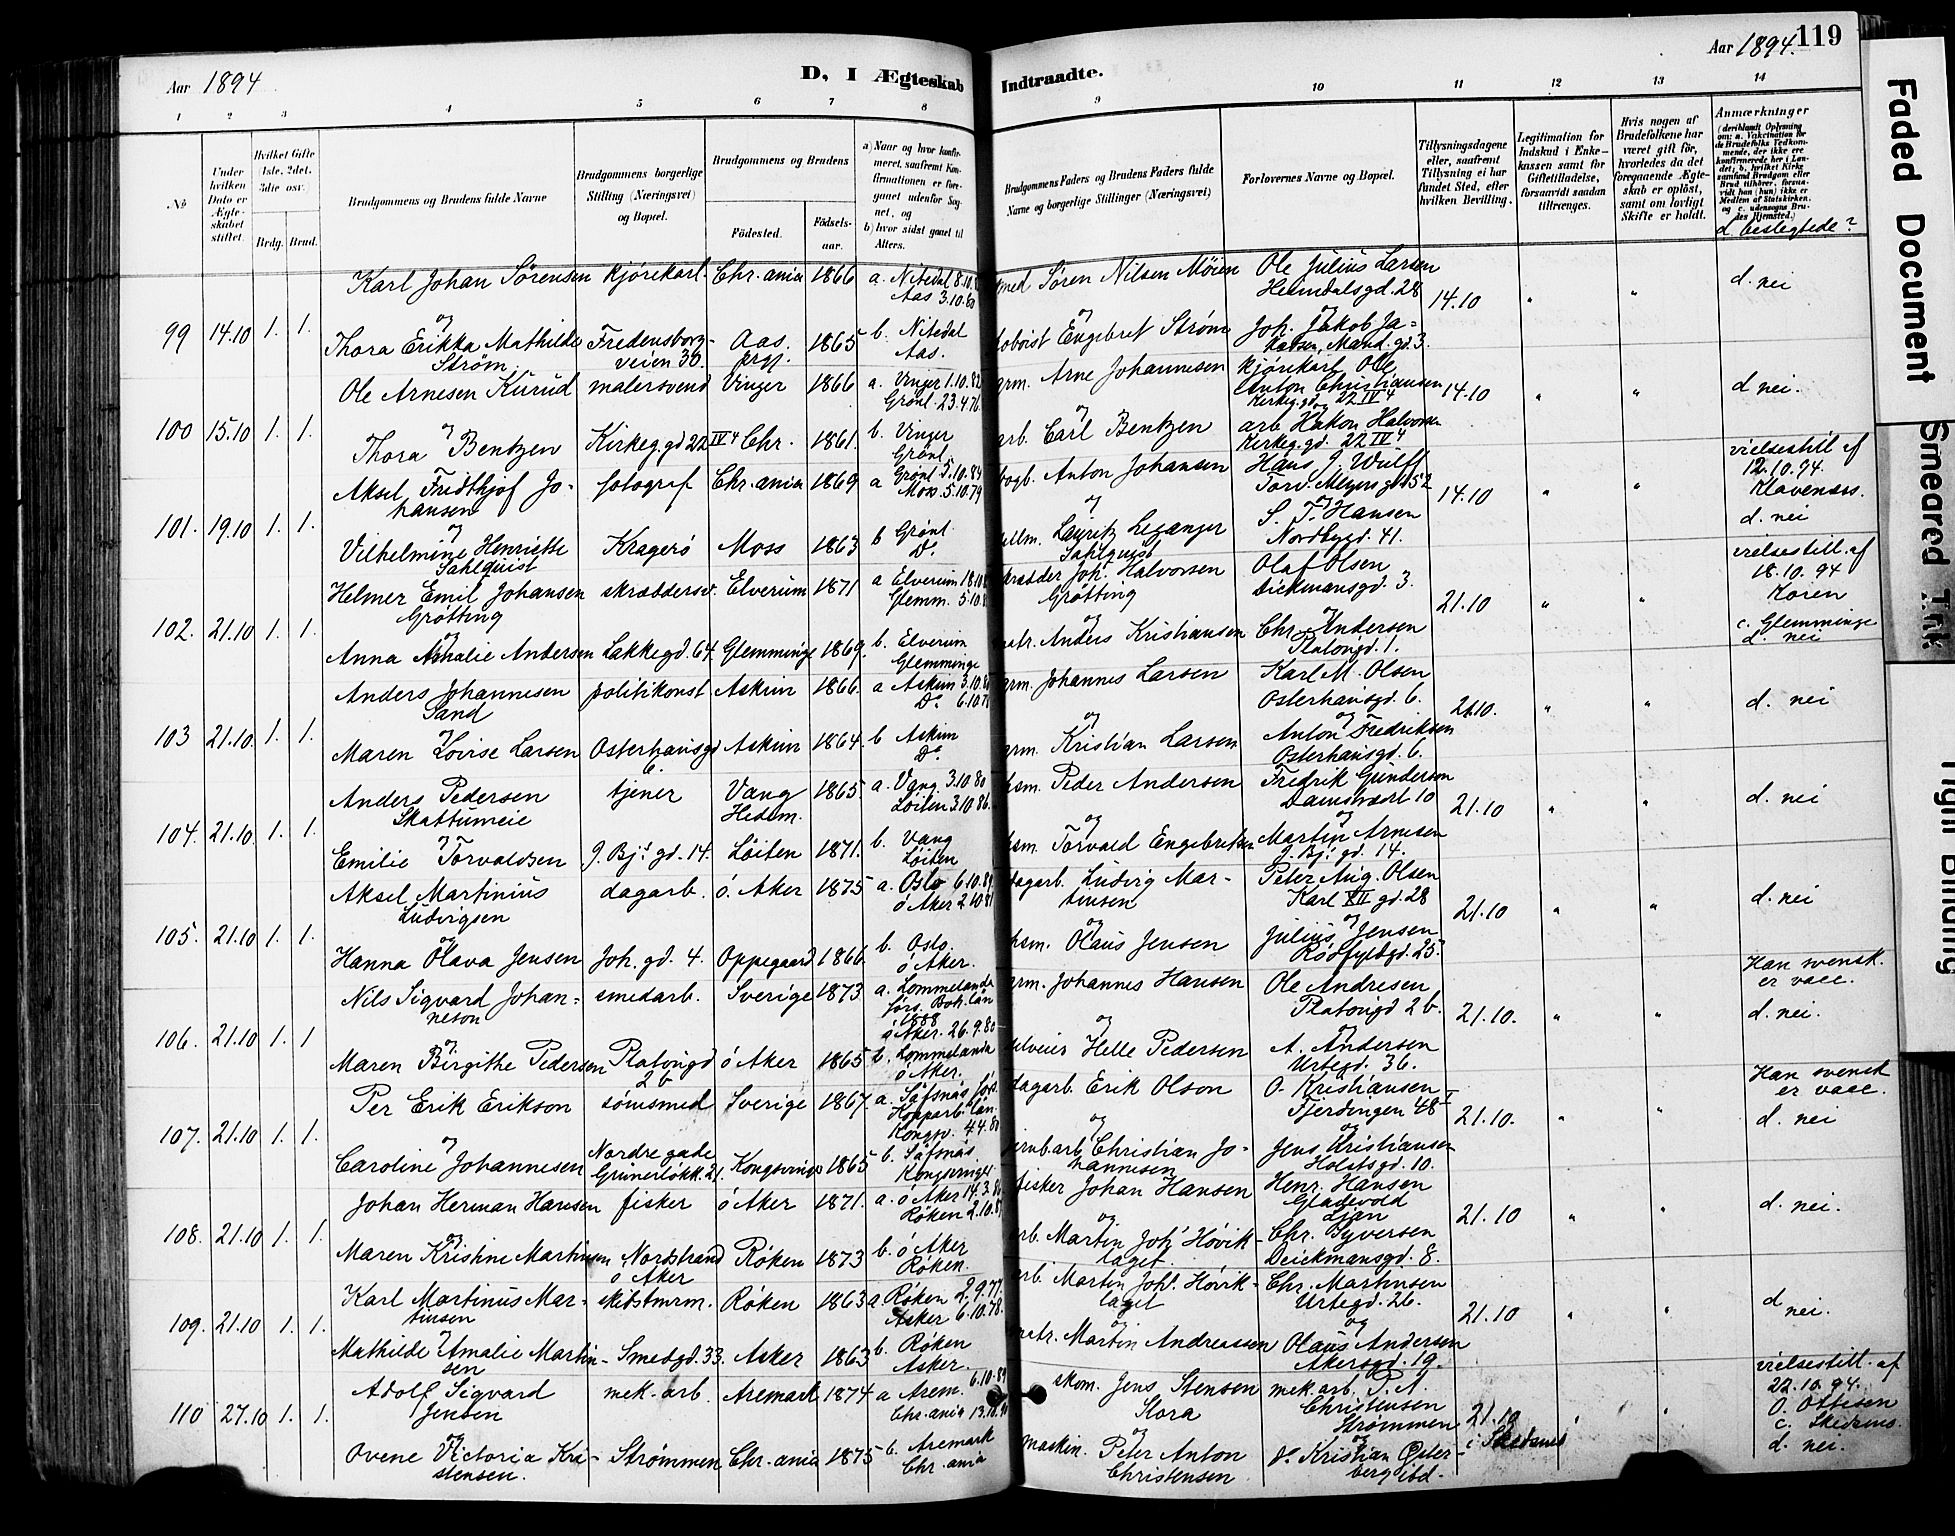 Aar 1894
D, I Ægteskab Indtraadte.
Aar 1894. 119
1 2 3 4 5 6 7 8 9 10 11 12 13 14
No
Under hvilken Dato er Ægteskabet stiftet.
Hvilket Gifte 1ste, 2det, 3die osv.
Brdg. Brud.
Brudgommens og Brudens fulde Navne
Brudgommens borgerlige Stilling (Næringsvei) og Bopæl.
Brudgommens og Brudens
Fødested. Fødselsaar.
a) Naar og hvor konfirmeret, saafremt Konfirmationen er foregaaet udenfor Sognet, og
b) hvor sidst gaaet til Alters.
Brudgommens Faders og Brudens Faders fulde Navne og borgerlige Stillinger (Næringsvei)
Forlovernes Navne og Bopæl.
Tillysningsdagene eller, saafremt Tillysning ei har fundet Sted, efter hvilken Bevilling.
Legitimation for Indskud i Enkekassen samt for Giftetilladelse, forsaavidt saadan tiltrænges.
Hvis nogen af Brudefolkene har været gift før, hvorledes da det foregaaende Ægteskab er opløst, samt om lovligt Skifte er holdt.
Anmærkninger
d. beslegtede?
Karl Johan Sørensen kjørekarl. Chr.ania 1866 a. Nitedal 8.10. Aas 3.10.80 Søren Nilsen Moien Ole Julius Larsen Heimdalsgd. 28 14.10 " " d. nei
99 14.10 1. 1. og
Thora Erikka Mathilde Strøm Fredensborgveien 30. Aas. prgj. 1865 b. Nitedal Aas. Engebret Strøm Joh. Jakob Jakobsen, Mand.gd. 3.
Ole Arnesen Kurud malersvend Vinger 1866 a. Vinger 1.10.82 Grønl. 23.4.76 grm. Arne Johannesen kjørekarl Ole Anton Christiansen Kirkeg.gd. 22 IV 4 14.10 " " d nei.
100 15.10 1. 1. og
Thora Bentzen Kirkeg.gd 22 IV 4 Chr. 1861. b. Vinger Grønl. arb. Carl Bentzen arb Hakon Halvorsen Kirkeg.gd. 22 IV 4
Aksel Fridthjof Johansen fotograf Chr.ania 1869 a Grønl 5.10.84 Mos. 5.10.79 bogb. Anton Johansen Hans J Wulff Torv. Meyersgd 52 14.10 " " vielsestill af 12.10.94. Klavenæss. d. nei
101. 19.10 1. 1. og
Vilhelmine Henriette Sahlquist Kragerø Moss 1863 b Grønl. Do. Lauritz Leganger Sahlquist S. T. Hansen Nordbygd. 41.
Helmer Emil Johansen Grøtting skræddersv. Elverum 1871 a Elverum 18.10. Glemm. 5.10. skrædder Joh. Halvorsen Grøtting Olaf Olsen Dickmansgd. 3. 21.10 " " vielsestill. af 18.10.94 Koren c. Glemminge d. nei
102. 21.10 1. 1. og
Anna Amalie Andersen Lakkegd. 64 Glemminge 1869. b. Elverum Glemminge Anders Kristiansen Chr. Andersen Platougd. 1.
Anders Johannesen Sand politikonst Askim 1866. a Askim 3.10. Do. 6.10.7 grm. Johannes Larsen Karl M. Olsen Osterhausgd. 6. 21.10. " " d. nei
103 21.10. 1. 1. og
Maren Lovise Larsen Osterhausgd 6 Askim 1864. b Askim Do. grm. Kristian Larsen Anton Fredriksen Osterhausgd. 6.
Anders Pedersen Skattumeie tjener Vang Hedem. 1865. a. Vang. 3.10.80 Løiten 3.10.86. hsm. Peder Andersen Fredrik Gundersen Damstræt 10 21.10 " " d. nei
104. 21.10. 1. 1. og
Emilie Torvaldsen J. Bj.s gd. 14. Løiten 1871. b. Vang Løiten hsm. Torvald Engebretsen Martin Arnesen J. Bj.s gd. 14.
Aksel Martinius Ludvigsen dagarb. ø. Aker 1875 a. Oslo 6.10.89 ø Aker 2.10.81 dagarb. Ludvig Martinsen Peter Aug. Olsen Karl XII gd. 28 21.10 " " d. nei
105. 21.10 1. 1. og
Hanna Olava Jensen Joh. gd. 4. Oppegaard 1866 b. Oslo. ø Aker. hsm. Olaus Jensen Julius Jensen Rødfyldgd. 25.
Nils Sigvard Johanneson smedarb. Sverige 1873 a. Lommelanda førs. Boh. län 1888 ø Aker. 26.9.80 grm. Johannes Hansen Ole Andresen Platougd 2b. 21.10. " " Han svensk. er vacc. d. nei.
106. 21.10 1. 1 og
Maren Birgithe Pedersen Platougd 2b ø Aker 1865 b. Lommelanda ø Aker. Helle Pedersen A. Andersen Urtegd. 36.
Per Erik Erikson sømsmed Sverige 1867. a. Säfsnäs førs. Kopparb. län. Kongsv. 4.4.80 dagarb. Erik Olson O. Kristiansen Fjerdingen 48 I 21.10. " " Han svensk er vacc. d. nei
107. 21.10 1. 1. og
Caroline Johannesen Nordregade Grünerløkk. 21. Kongsvinger 1865 b. Säfsnäs. Kongsvinger. Christian Johannesen Jens Kristiansen Holstsgd. 10.
Johan Herman Hansen fisker ø Aker 1871. a. ø Aker 14.3. Røken 2.10.8 fisker Johan Hansen Henr. Hansen Gladvold Ljan 21.10 " " d. nei.
108. 21.10 1. 1. og
Maren Kristine Martinsen Nordstrand ø Aker Røken 1873 b. ø Aker Røken. arb. Martin Joh. Høviklaget. Chr. Syversen Deickmansgd. 8.
Karl Martinus Martinsen skibstmrm. Røken 1863 a Røken 2.9.77. Asker 6.10.78. arb. Martin Joh. Høviklaget Chr. Martinsen Urtegd. 26. 21.10 " " d nei.
109. 21.10 1. 1. og
Mathilde Amalie Martinsen Smedgd. 33. Asker 1863 b. Røken Asker. Martin Andreassen Olaus Andersen Akersgd. 19.
Adolf Sigvard Jensen mek. arb. Aremark 1874 a Arem. 6.10.89 Chr.ania 13.10. skom. Jens Stensen Slora mek. arb. P. A. Christensen Strømmen 21.10 i Skedsmo " " vielsestill. af 22.10.94. O. Ottesen c. Skedsmo. d. nei.
110 27.10 1. 1. og
Ovene Victoria Kristensen. Strømmen Chr.ania 1875 b. Aremark Chr.ania maskin. Peter Anton Christensen Do. Kristian Østerberg ibd.
Faded Document
Smeared Ink
Tight Binding